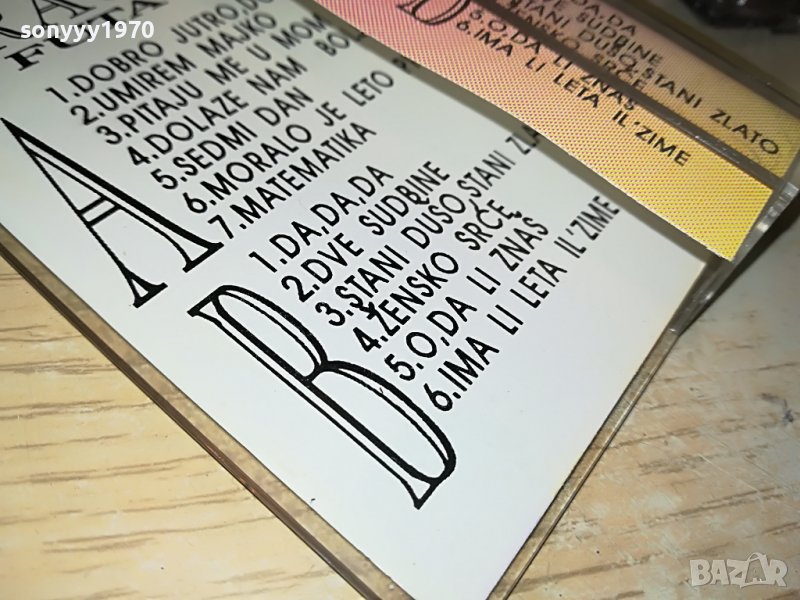 sonyyy1970
FUTA
A
1.DOBRO JUTRO,
2.UMIREM MAJKO
3.PITAJU ME U MOM
4.DOLAZE NAM
5.SEDMI DAN
6.MORALO JE LETO
7.MATEMATIKA
B
1.DA,DA,DA
2.DVE SUDBINE
3.STANI DUŠO,STANI
4.ŽENSKO SRČE
5.O,DA LI ZNAŠ
6.IMA LI LETA IL'ZIME
DA,DA
DVE SUDBINE
STANI DUŠO,STANI ZLATO
ŽENSKO SRČE
5.O,DA LI ZNAŠ
6.IMA LI LETA IL'ZIME
BAZAR